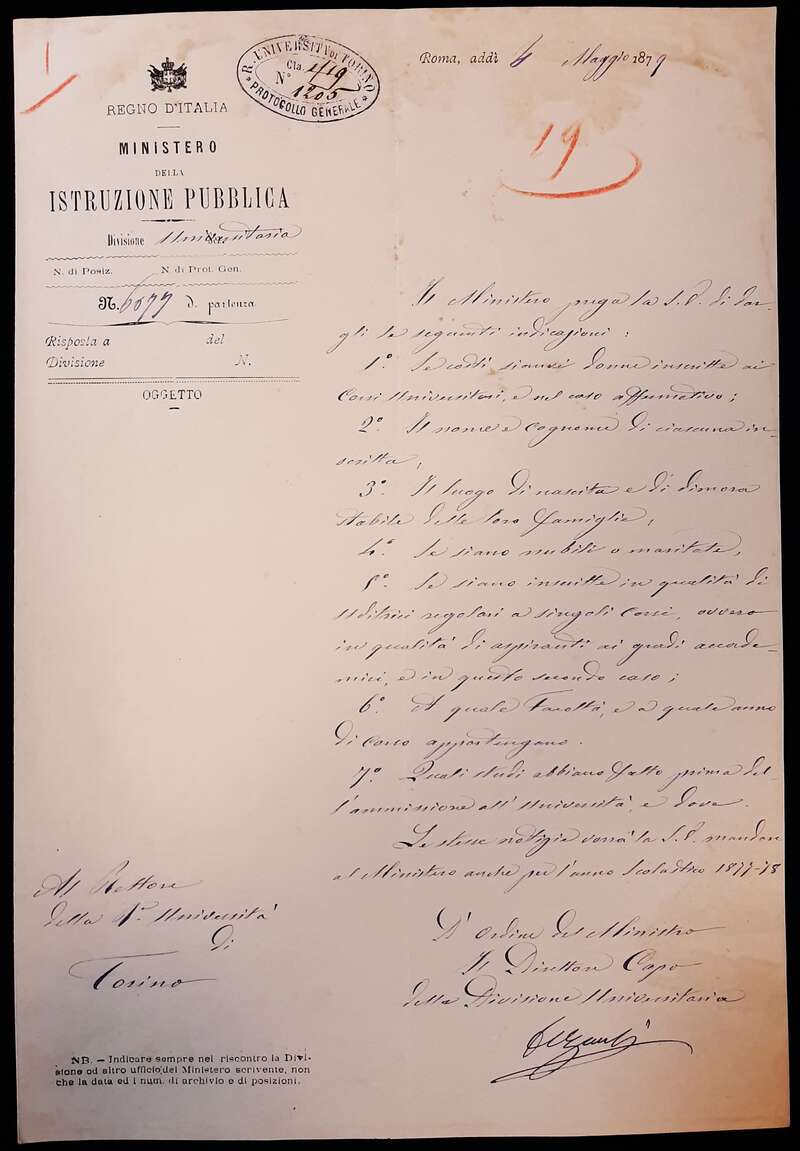 R. UNIVERSITÀ DI TORINO
Cla. 1/19
N° 1205
PROTOCOLLO GENERALE
Roma, addì 4 Maggio 1879
19
REGNO D'ITALIA
MINISTERO
DELLA
ISTRUZIONE PUBBLICA
Divisione Universitaria
N. di Posiz. N. di Prot. Gen.
N. 6077 di partenza
Risposta a del
Divisione N.
OGGETTO
Il Ministero prega la S.V. di dar-
gli le seguenti indicazioni:
1°. Se costì sianvi donne inscritte ai
Corsi Universitari, e nel caso affermativo;
2°. Il nome e cognome di ciascuna in-
scritta;
3°. Il luogo di nascita e di dimora
stabile delle loro famiglie;
4°. Se siano nubili o maritate,
5°. Se siano inscritte in qualità di
Uditrici regolari a singoli Corsi, ovvero
in qualità di aspiranti ai gradi accade-
mici, e in questo secondo caso;
6°. A quale Facoltà, e a quale anno
di corso appartengano.
7°. Quali studi abbiano fatto prima del-
l'ammissione all'Università, e dove.
Le stesse notizie vorrà la S.V. mandare
al Ministero anche per l'anno Scolastico 1877-78
D'ordine del Ministro
Il Direttore Capo
della Divisione Universitaria
Al Rettore
della Rª. Università
di
Torino
NB. — Indicare sempre nel riscontro la Divi-
sione od altro ufficio del Ministero scrivente, non
che la data ed i num. di archivio e di posizioni.